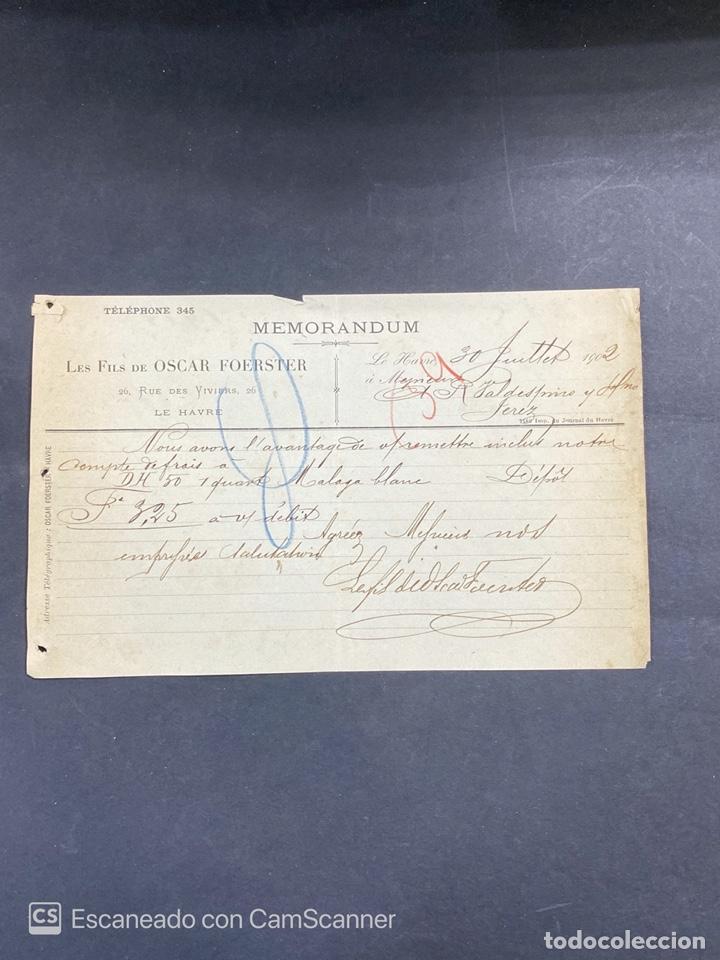 TÉLÉPHONE 345
MEMORANDUM
LES FILS DE OSCAR FOERSTER
26, RUE DES VIVIERS, 26
LE HAVRE
Le Havre, 30 Juillet 1902
à Messieurs
A R Valdespino y Hno
Jerez
Imp. du Journal du Havre
Adresse Télégraphique : OSCAR FOERSTER HAVRE
39
Nous avons l'avantage de v/ remettre inclus notre
compte de frais à
DH 50 1 quart Malaga blanc Dépôt
Fs 3,25 à v/ débit
Agréez Messieurs nos
empressés salutations
CS Escaneado con CamScanner
todocoleccion